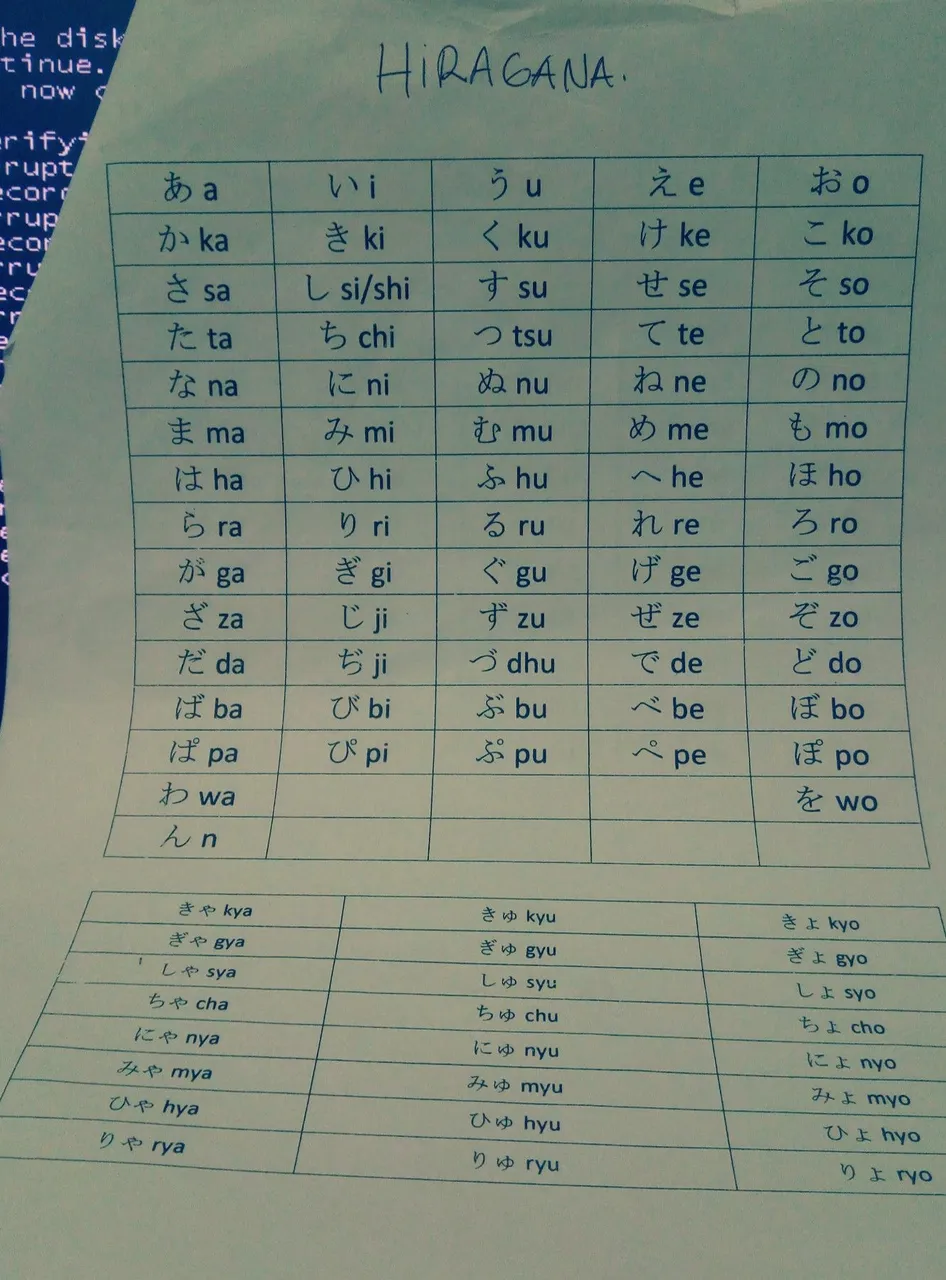 he disk
tinue.
now
HiRAGANA.
あ a い i う u え e お o
か ka き ki く ku け ke こ ko
さ sa し si/shi す su せ se そ so
た ta ち chi つ tsu て te と to
な na に ni ぬ nu ね ne の no
ま ma み mi む mu め me も mo
は ha ひ hi ふ hu へ he ほ ho
ら ra り ri る ru れ re ろ ro
が ga ぎ gi ぐ gu げ ge ご go
ざ za じ ji ず zu ぜ ze ぞ zo
だ da ぢ ji づ dhu で de ど do
ば ba び bi ぶ bu べ be ぼ bo
ぱ pa ぴ pi ぷ pu ぺ pe ぽ po
わ wa を wo
ん n
きゃ kya きゅ kyu きょ kyo
ぎゃ gya ぎゅ gyu ぎょ gyo
しゃ sya しゅ syu しょ syo
ちゃ cha ちゅ chu ちょ cho
にゃ nya にゅ nyu にょ nyo
みゃ mya みゅ myu みょ myo
ひゃ hya ひゅ hyu ひょ hyo
りゃ rya りゅ ryu りょ ryo